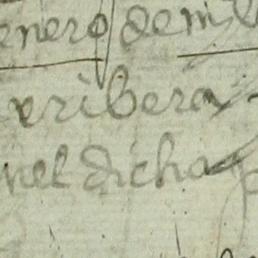 enero de mil
e ribera
nel dicha